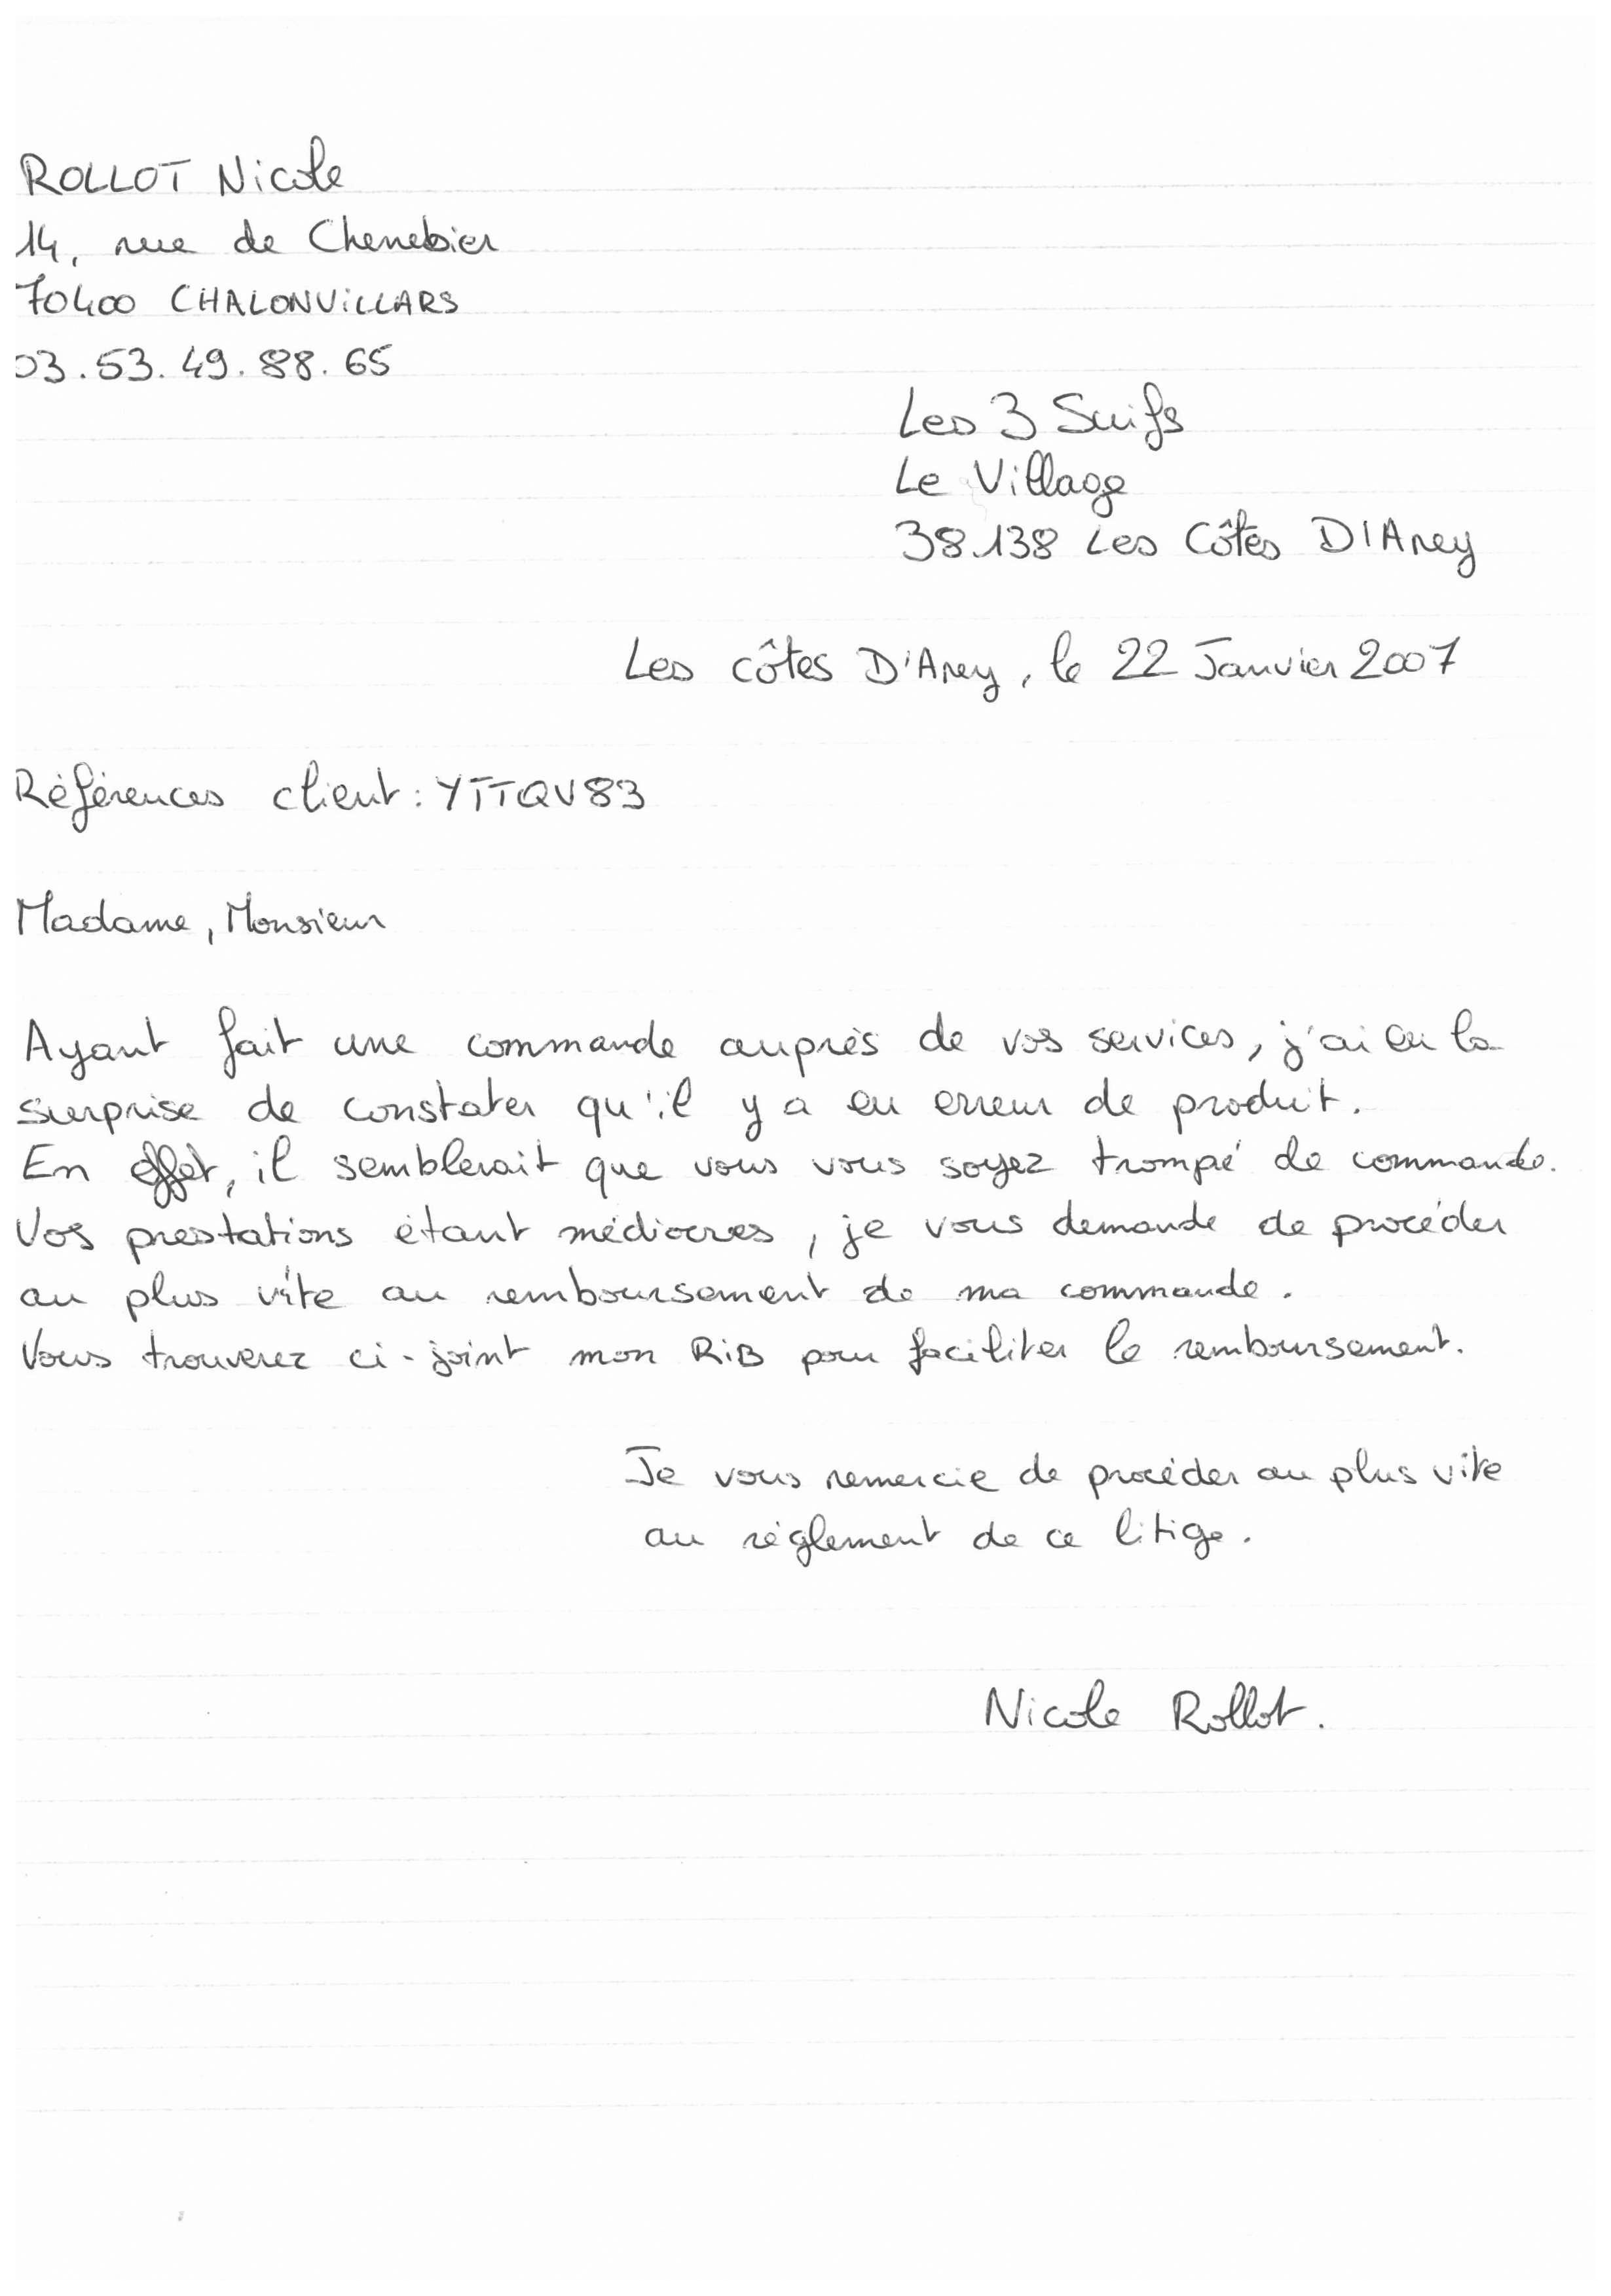 ROLLOT Nicole
14, rue de Chenebier
70400 CHALONVILLARS
03.53.49.88.65
Les 3 Suifs
Le Village
38138 Les Côtes D'Arey
Les côtes D'Arey, le 22 Janvier 2007
Références client : YTTQV83
Madame, Monsieur
Ayant fait une commande auprès de vos services, j'ai eu la
surprise de constater qu'il y a eu erreur de produit.
En effet, il semblerait que vous vous soyez trompé de commande.
Vos prestations étant médiocres, je vous demande de procéder
au plus vite au remboursement de ma commande.
Vous trouverez ci-joint mon RiB pour faciliter le remboursement.
Je vous remercie de procéder au plus vite
au réglement de ce litige.
Nicole Rollot.